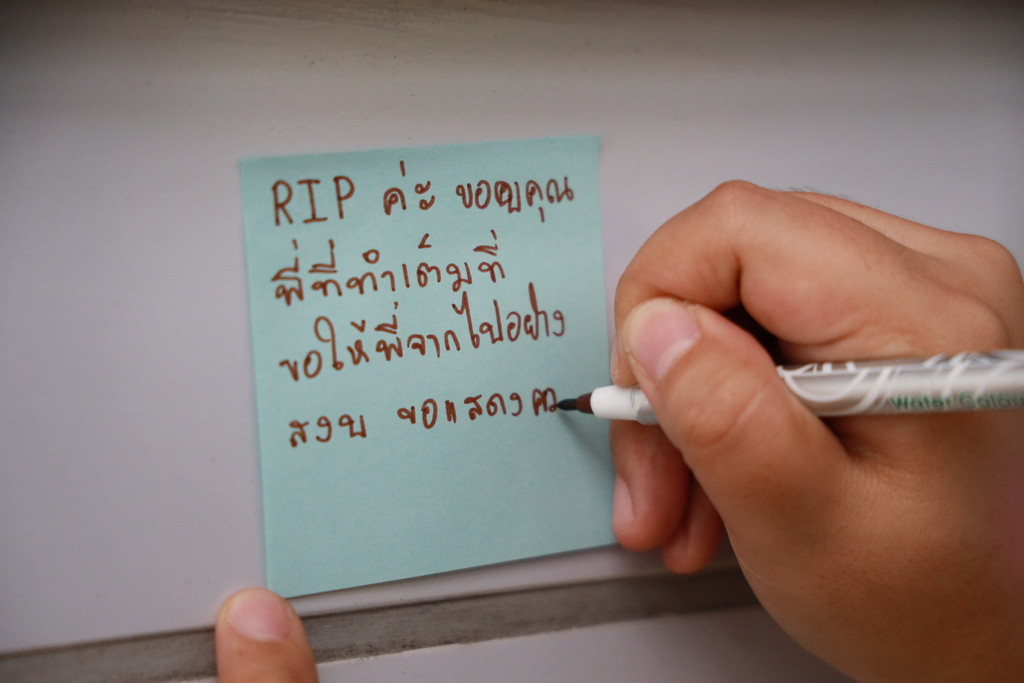 RIP ค่ะ ขอบคุณ
พี่ที่ทำเต็มที่
ขอให้พี่จากไปอย่าง
สงบ ขอแสดงคว
Water Colou